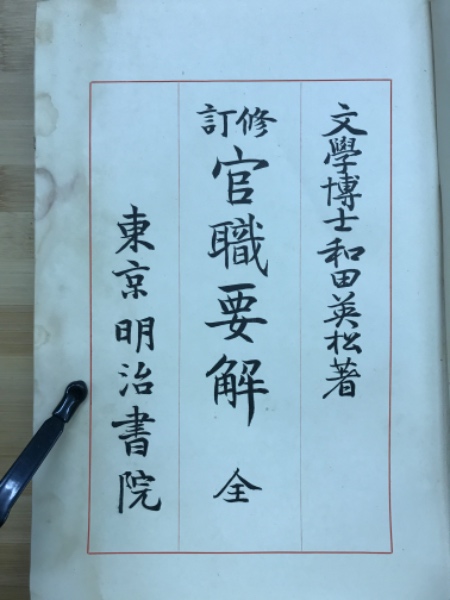 文學博士和田英松著
修訂
官職要解 全
東京明治書院